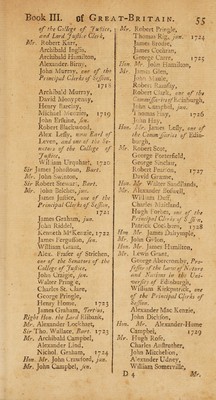 Book III. of GREAT-BRITAIN. 55
of the College of Justice,
and Lord Justice Clerk,
Mr. Robert Karr,
Archibald Inglis,
Archibald Hamilton,
Alexander Birny,
John Murray, one of the
Principal Clerks of Session,
1711
Archibald Murray,
David Monypenny,
Henry
Michael 1719
John Erskine,
Robert Blackwood,
Alex. Lesly, now Earl of
Leven, and one of the
of the College of
Justice,
William Urquhart, 1720
Sir James Johnstoun, Bart.
Mr. John
Sir Robert Stewart, Bart.
Mr. John Belches,
James Justice, one of the
Principal Clerks of Session,
1721
James Graham, jun.
John Riddel,
Kenneth McKenzie, 1722
James Ferguson, sen.
William Grant,
Alex. Fraser of Strichen,
one of the Senators of the
College of Justice,
John Craigie, jun.
Walter Pringle,
Charles St. Clare,
George Pringle,
Henry Home, 1723
James Graham, Tertius,
Right Hon. the Lord Elibank,
Mr. Alexander Lockhart,
Sir Tho. Wallace, Bart. 1723
Mr. Archibald Campbel,
Alexander Lind,
Nichol. Graham, 1724
Hon. Mr. John Crawford, jun.
Mr. John Campbel, jun.
Mr. Robert Pringle,
Thomas Rig, jun. 1724
James Baillie,
James Cochran,
George Carre, 1725
Hon. Mr. John Hamilton,
Mr. James Glen,
John
Robert Ramsay,
Robert Clark, one of the
Commissaries of Edinburgh,
John Campbel, jun.
Thomas Hay, 1726
John Hay,
Hon. Sir James Lesly, one of
the Commissaries of Edinburgh,
Mr. Robert Scot,
George Porterfield,
George Sinclair,
Robert Pearson, 1727
David Graeme,
Hon. Mr. Walter Sandilands,
Mr. Alexander Boswell,
William Duff,
Charles Maitland,
Hugh Forbes, one of the
Principal Clerks of Session,
Patrick Cockburn, 1728
Hon. Mr. James Dalrymple,
Mr. John Gillon,
Hon. Mr. James Hamilton,
Mr. Lewis Grant,
George Abercromby, Professor
of the Laws of Nature
and Nations in the University
of Edinburgh,
William Kirkpatrick, one
of the Principal Clerks of
Session,
Alexander Mac Kenzie,
John Dickson,
Hon. Mr. Alexander-Home
Campbel, 1729
Mr. Hugh Rose,
Charles Anstruther,
John Mitchelson,
Alexander Udney,
William Somerville,
D 4 Mr.